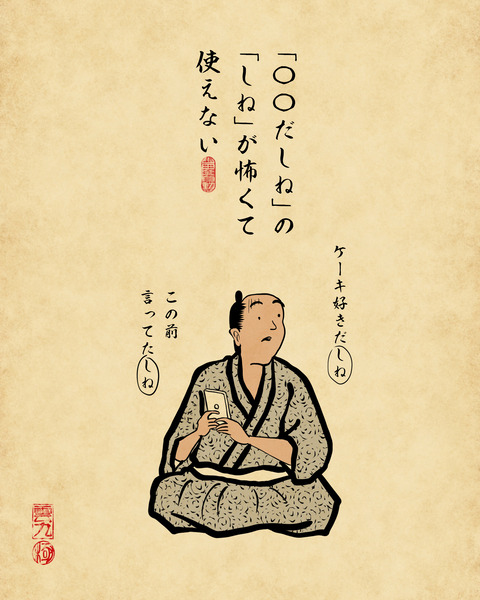 「〇〇だしね」の
「しね」が怖くて
使えない
ケーキ好きだしね
この前
言ってたしね